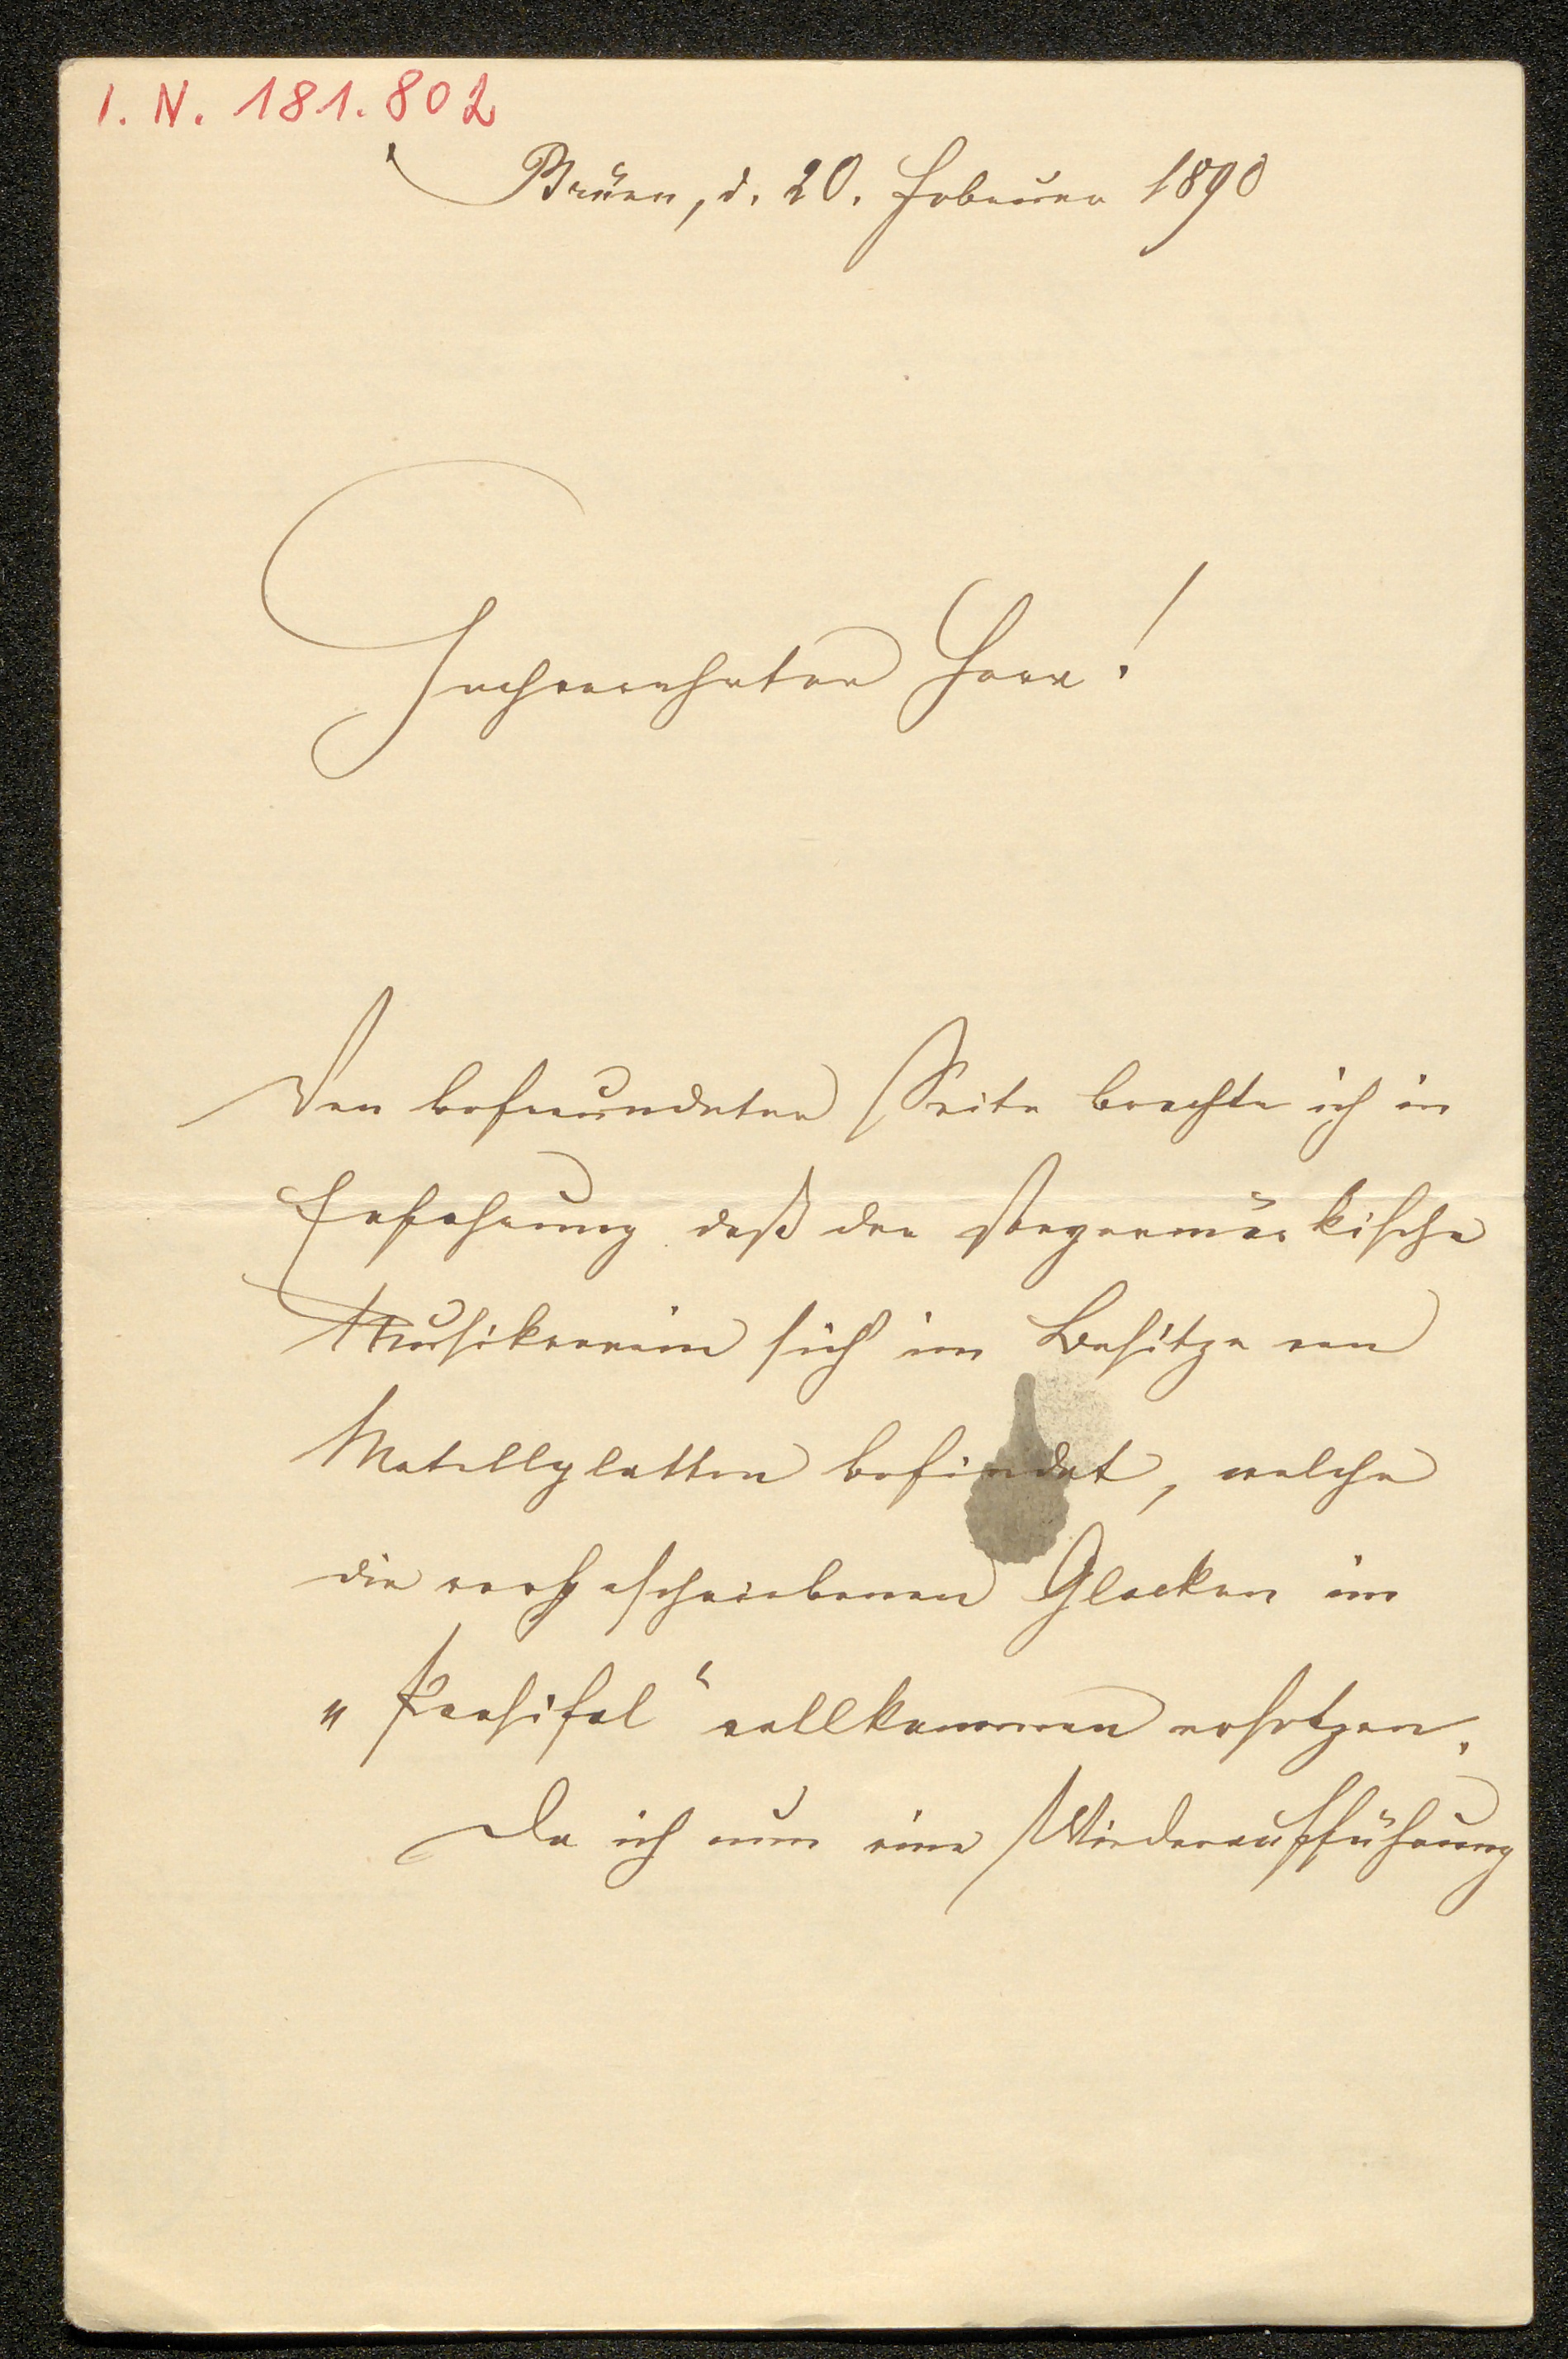 I. N. 181.802
Brünn, d. 20. Februar 1890
Hochverehrter Herr!
Von befreundeter Seite brachte ich in
Erfahrung daß der steyermärkische
Musikverein sich im Besitze von
Metallplatten befindet, welche
die vorgeschriebenen Glocken im
„Parsifal“ vollkommen ersetzen.
Da ich nun eine Wiederaufführung